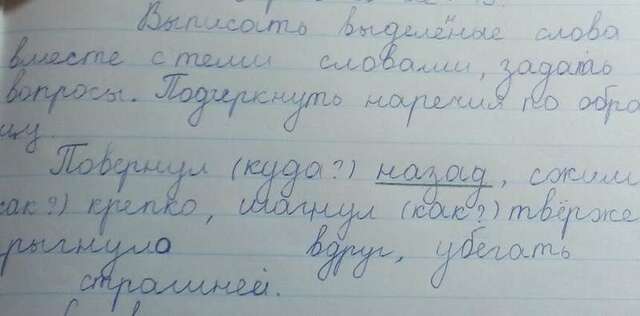 Выписать выделёные слова
вместе с теми словами, задать
вопросы. Подчеркнуть наречия по обра
цу.
Повернул (куда?) назад, сожим
как?) крепко, шагнул (как?) твёрже
рыгнуло вдруг, убегать
страшней.